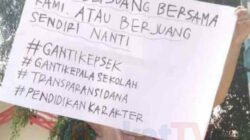 BERJUANG BERSAMA
KAMI, ATAU BERJUANG
SENDIRI NANTI
#GANTIKEPSEK
#GANTIKEPALA SEKOLAH
#TRANSPARANSIDANA
#PENDIDIKANKARAKTER